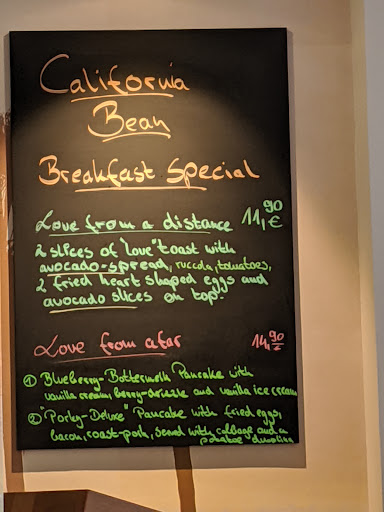 California
Bean
Breakfast Special
Love from a distance 11,90 €
2 slices of "love" toast with
avocado-spread, ruccola, tomatoes,
2 fried heart shaped eggs and
avocado slices on top!
Love from afar 14,90 €
① Blueberry-Buttermelk Pancake with
vanilla cream, berry-drizzle and vanilla ice cream
② "Porky-Deluxe" Pancake with fried eggs,
bacon, roast-pork, served with cabbage and a
potatoe dumpling